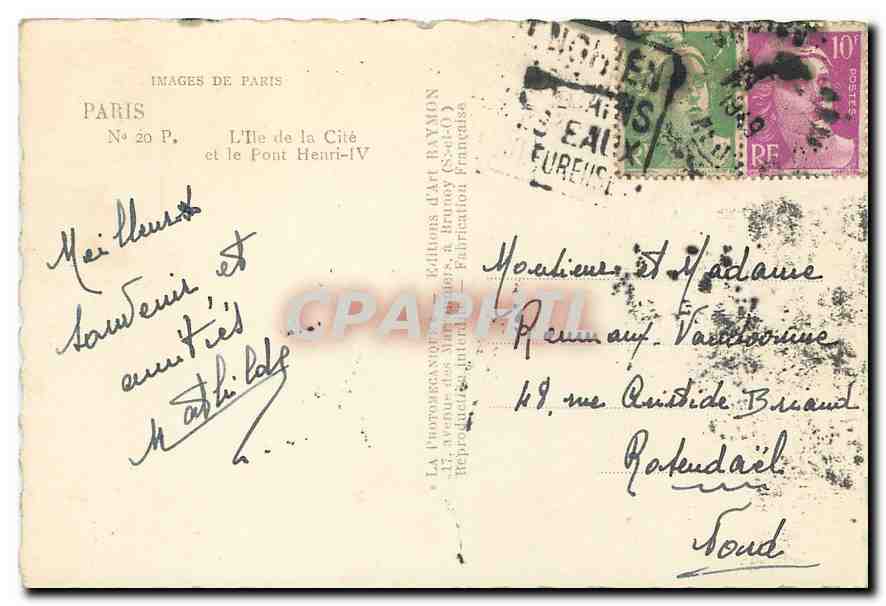 IMAGES DE PARIS
PARIS
No 20 P. L'Ile de la Cité
et le Pont Henri-IV
Meilleurs
souvenir et
amitiés
Mathilde
" LA PHOTOMECANIQUE " — Editions d'Art RAYMON
17, avenue des à Brunoy (S.-et-O.)
Reproduction Interdite — Fabrication Française
ENGHIEN
EAUX
10F
POSTES
RF
RF
1949
CPAPHIL
Monsieur et Madame
48, rue Aristide Briand
Rosendaël
Nord